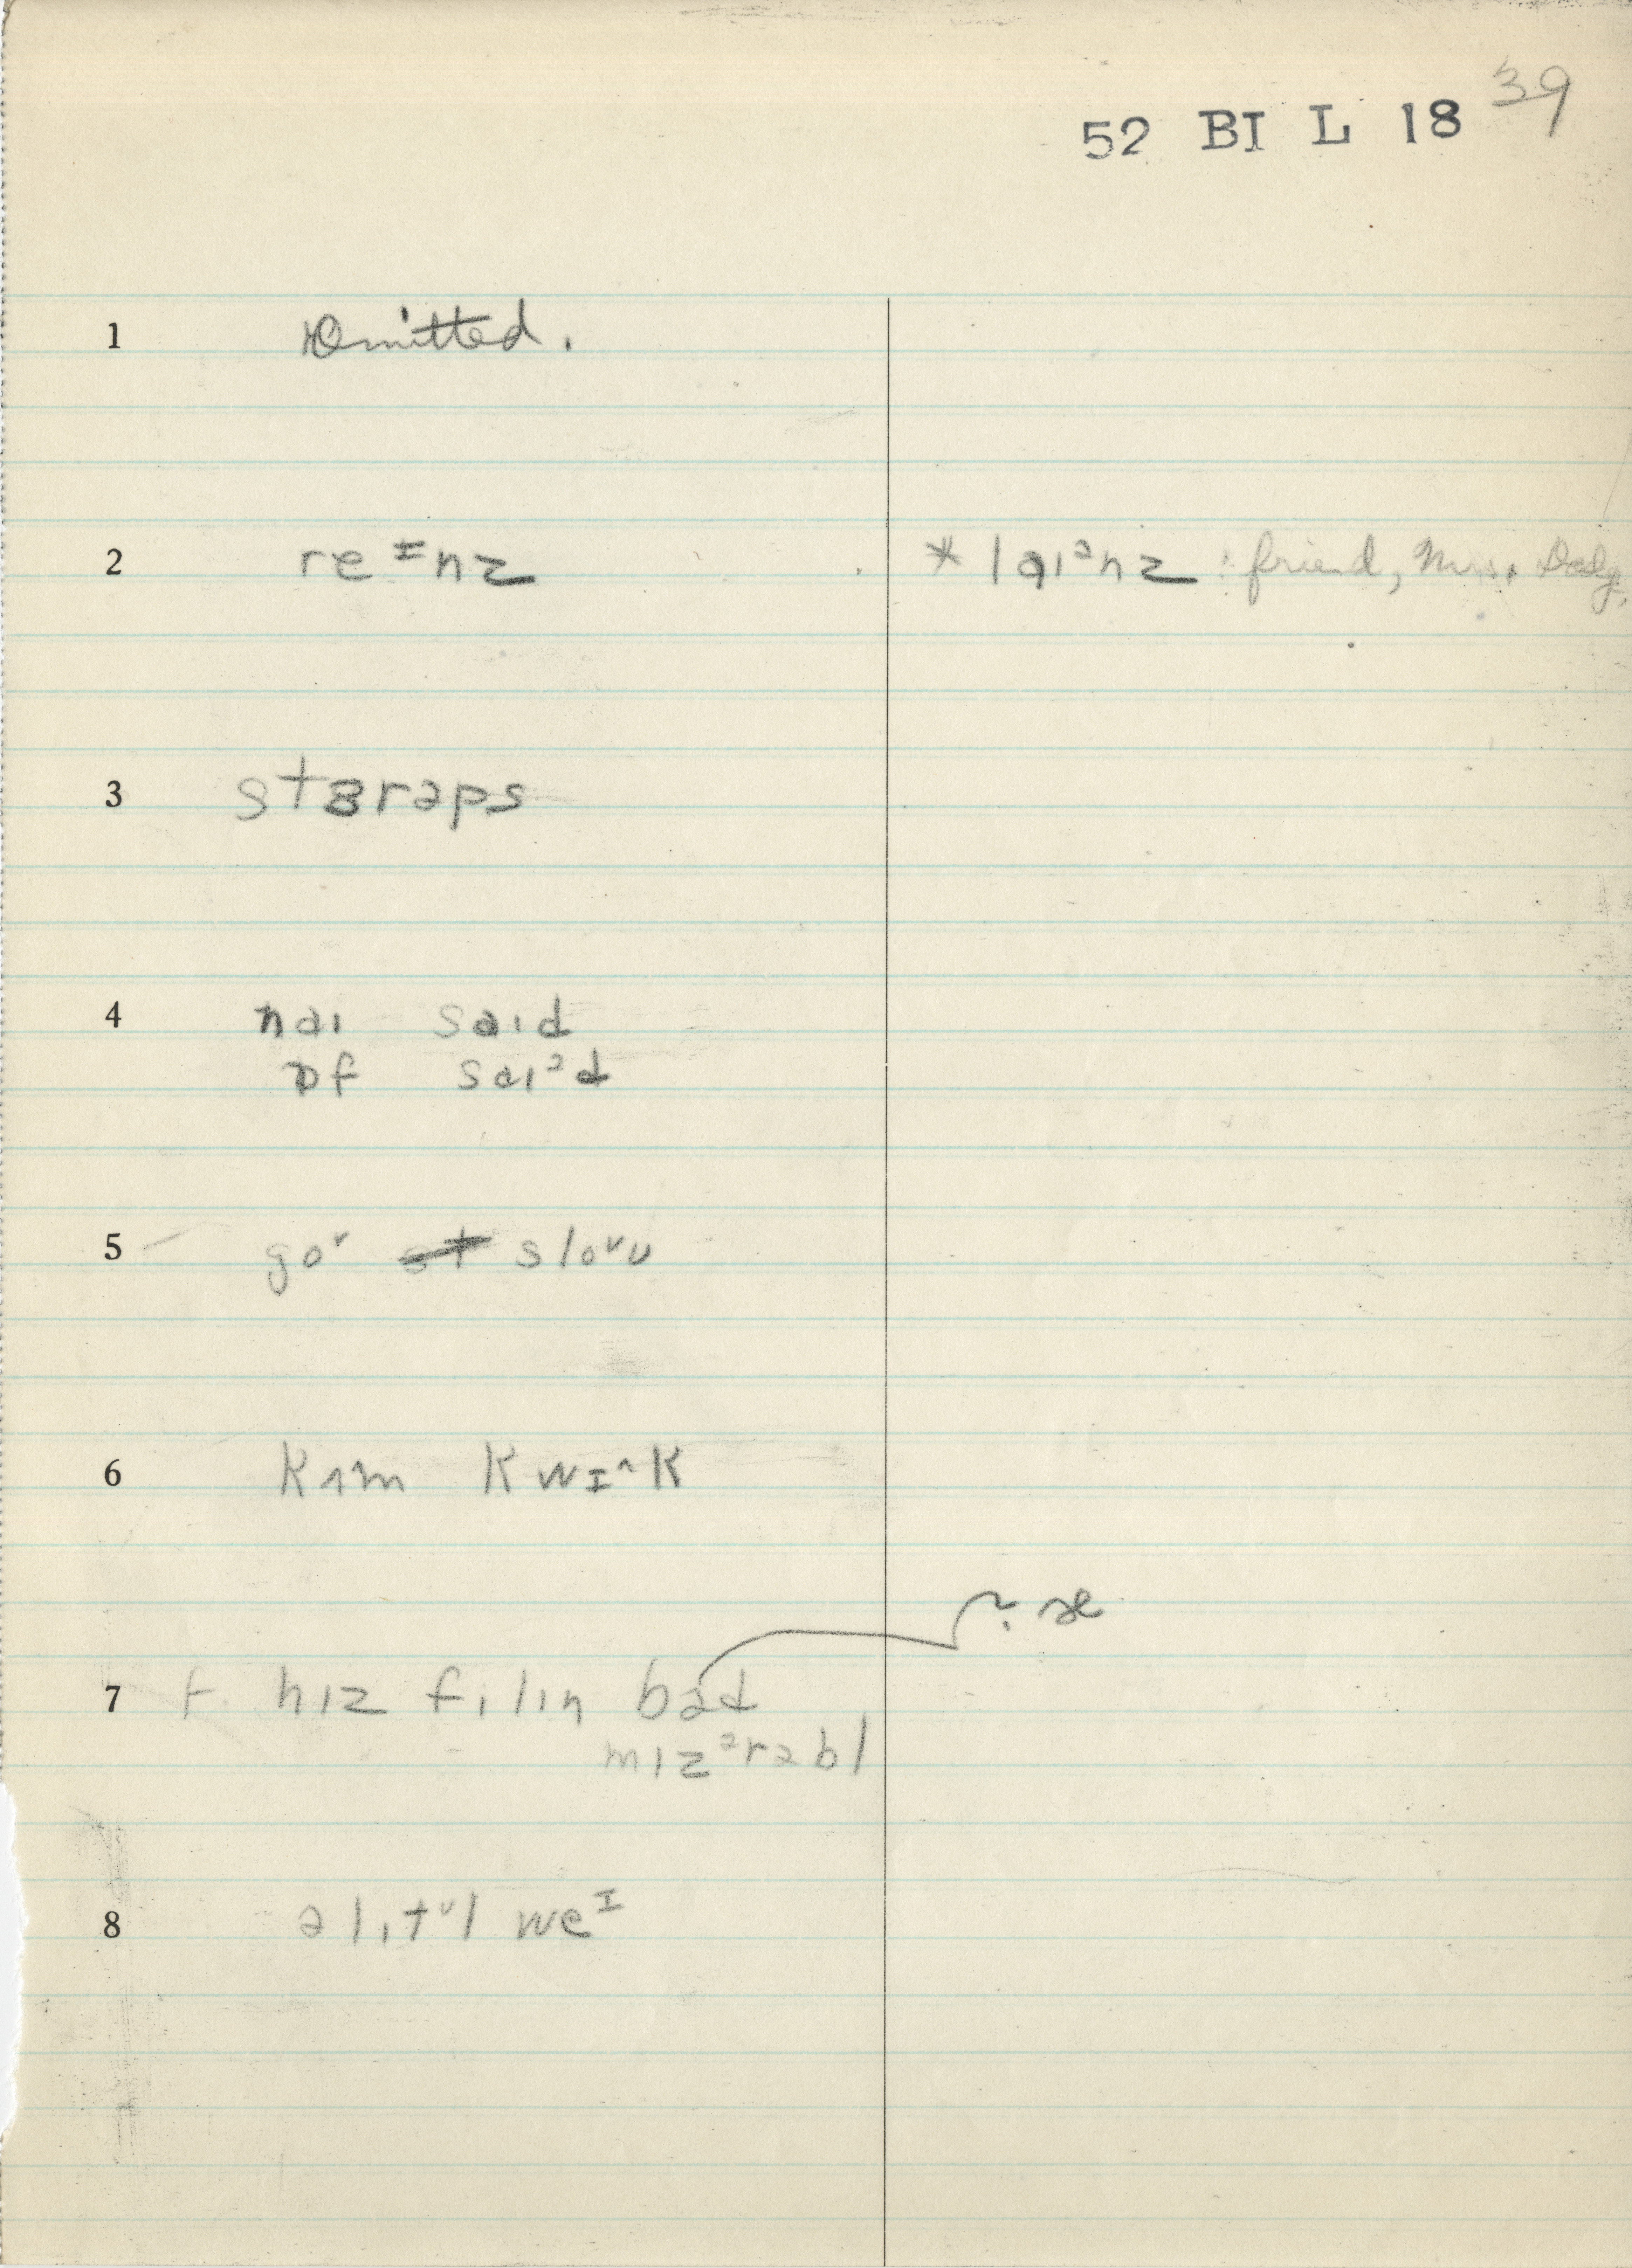 39
52 BI L 18
1 Omitted.
2 re ᶦnz * lɑɪᵊnz : friend, Mrs. Dodg.
3 stɜrəps
4 naɪ saɪd
ɒf saɪᵊd
5 goᶷ sloᶷʊ
6 kʌm kwɪ^k
7 hɪz filɪn bad ? æ
mɪzᵊrəbl
8 ə lɪtᶷl weᶦ